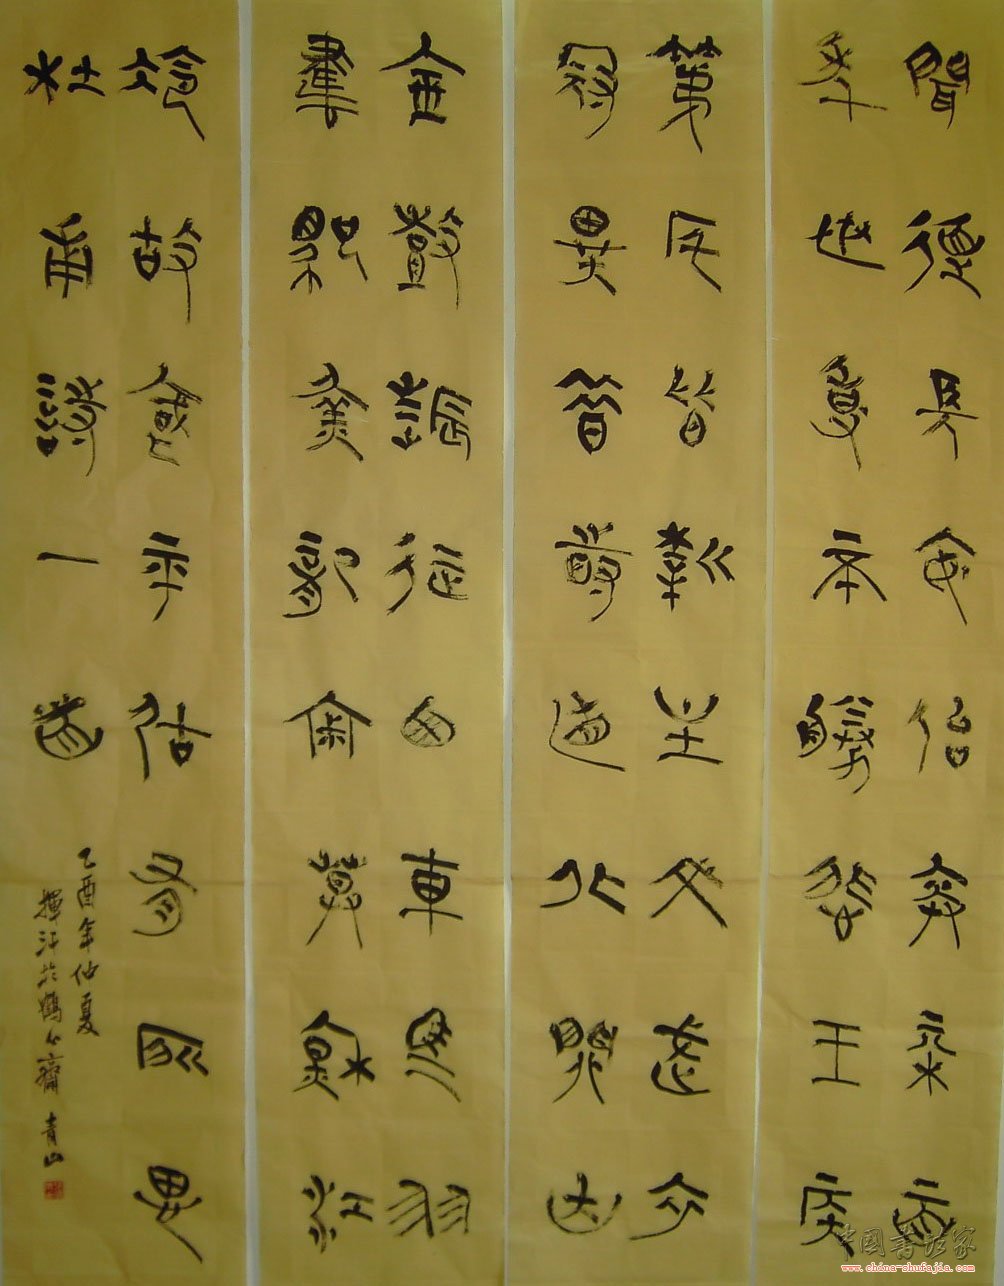 聞道長安似弈棋百
年世事不勝悲王侯
第宅皆新主文武衣
冠異昔時直北關山
金鼓振征西車馬羽
書馳魚龍寂寞秋江
冷故國平居有所思
杜甫詩一首
乙酉年仲夏
揮汗於鶴齋 青山
中国書法家
www.china-shufajia.com